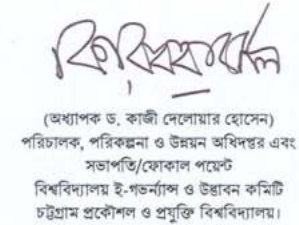 (অধ্যাপক ড. কাজী দেলোয়ার হোসেন)
পরিচালক, পরিকল্পনা ও উন্নয়ন অধিদপ্তর এবং
সভাপতি/ফোকাল পয়েন্ট
বিশ্ববিদ্যালয় ই-গভর্ন্যান্স ও উদ্ভাবন কমিটি
চট্টগ্রাম প্রকৌশল ও প্রযুক্তি বিশ্ববিদ্যালয়।